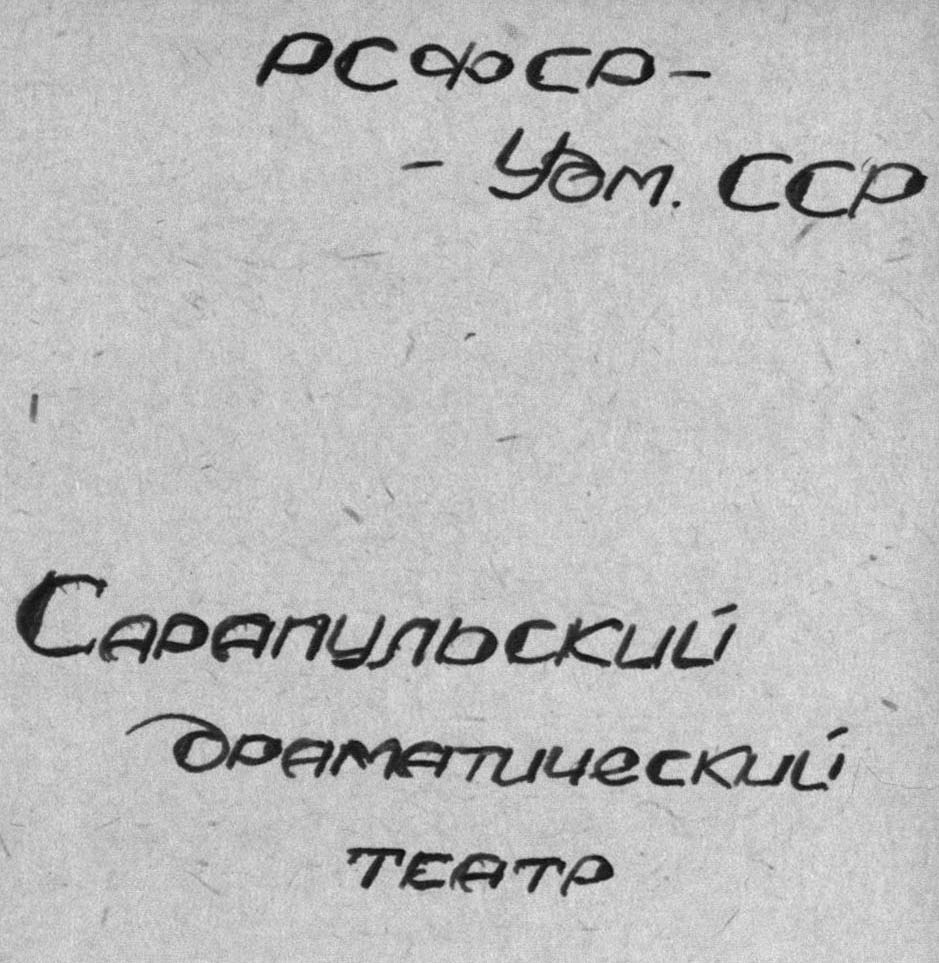 РСФСР-
- Удм. ССР
Сарапульский
драматический
театр